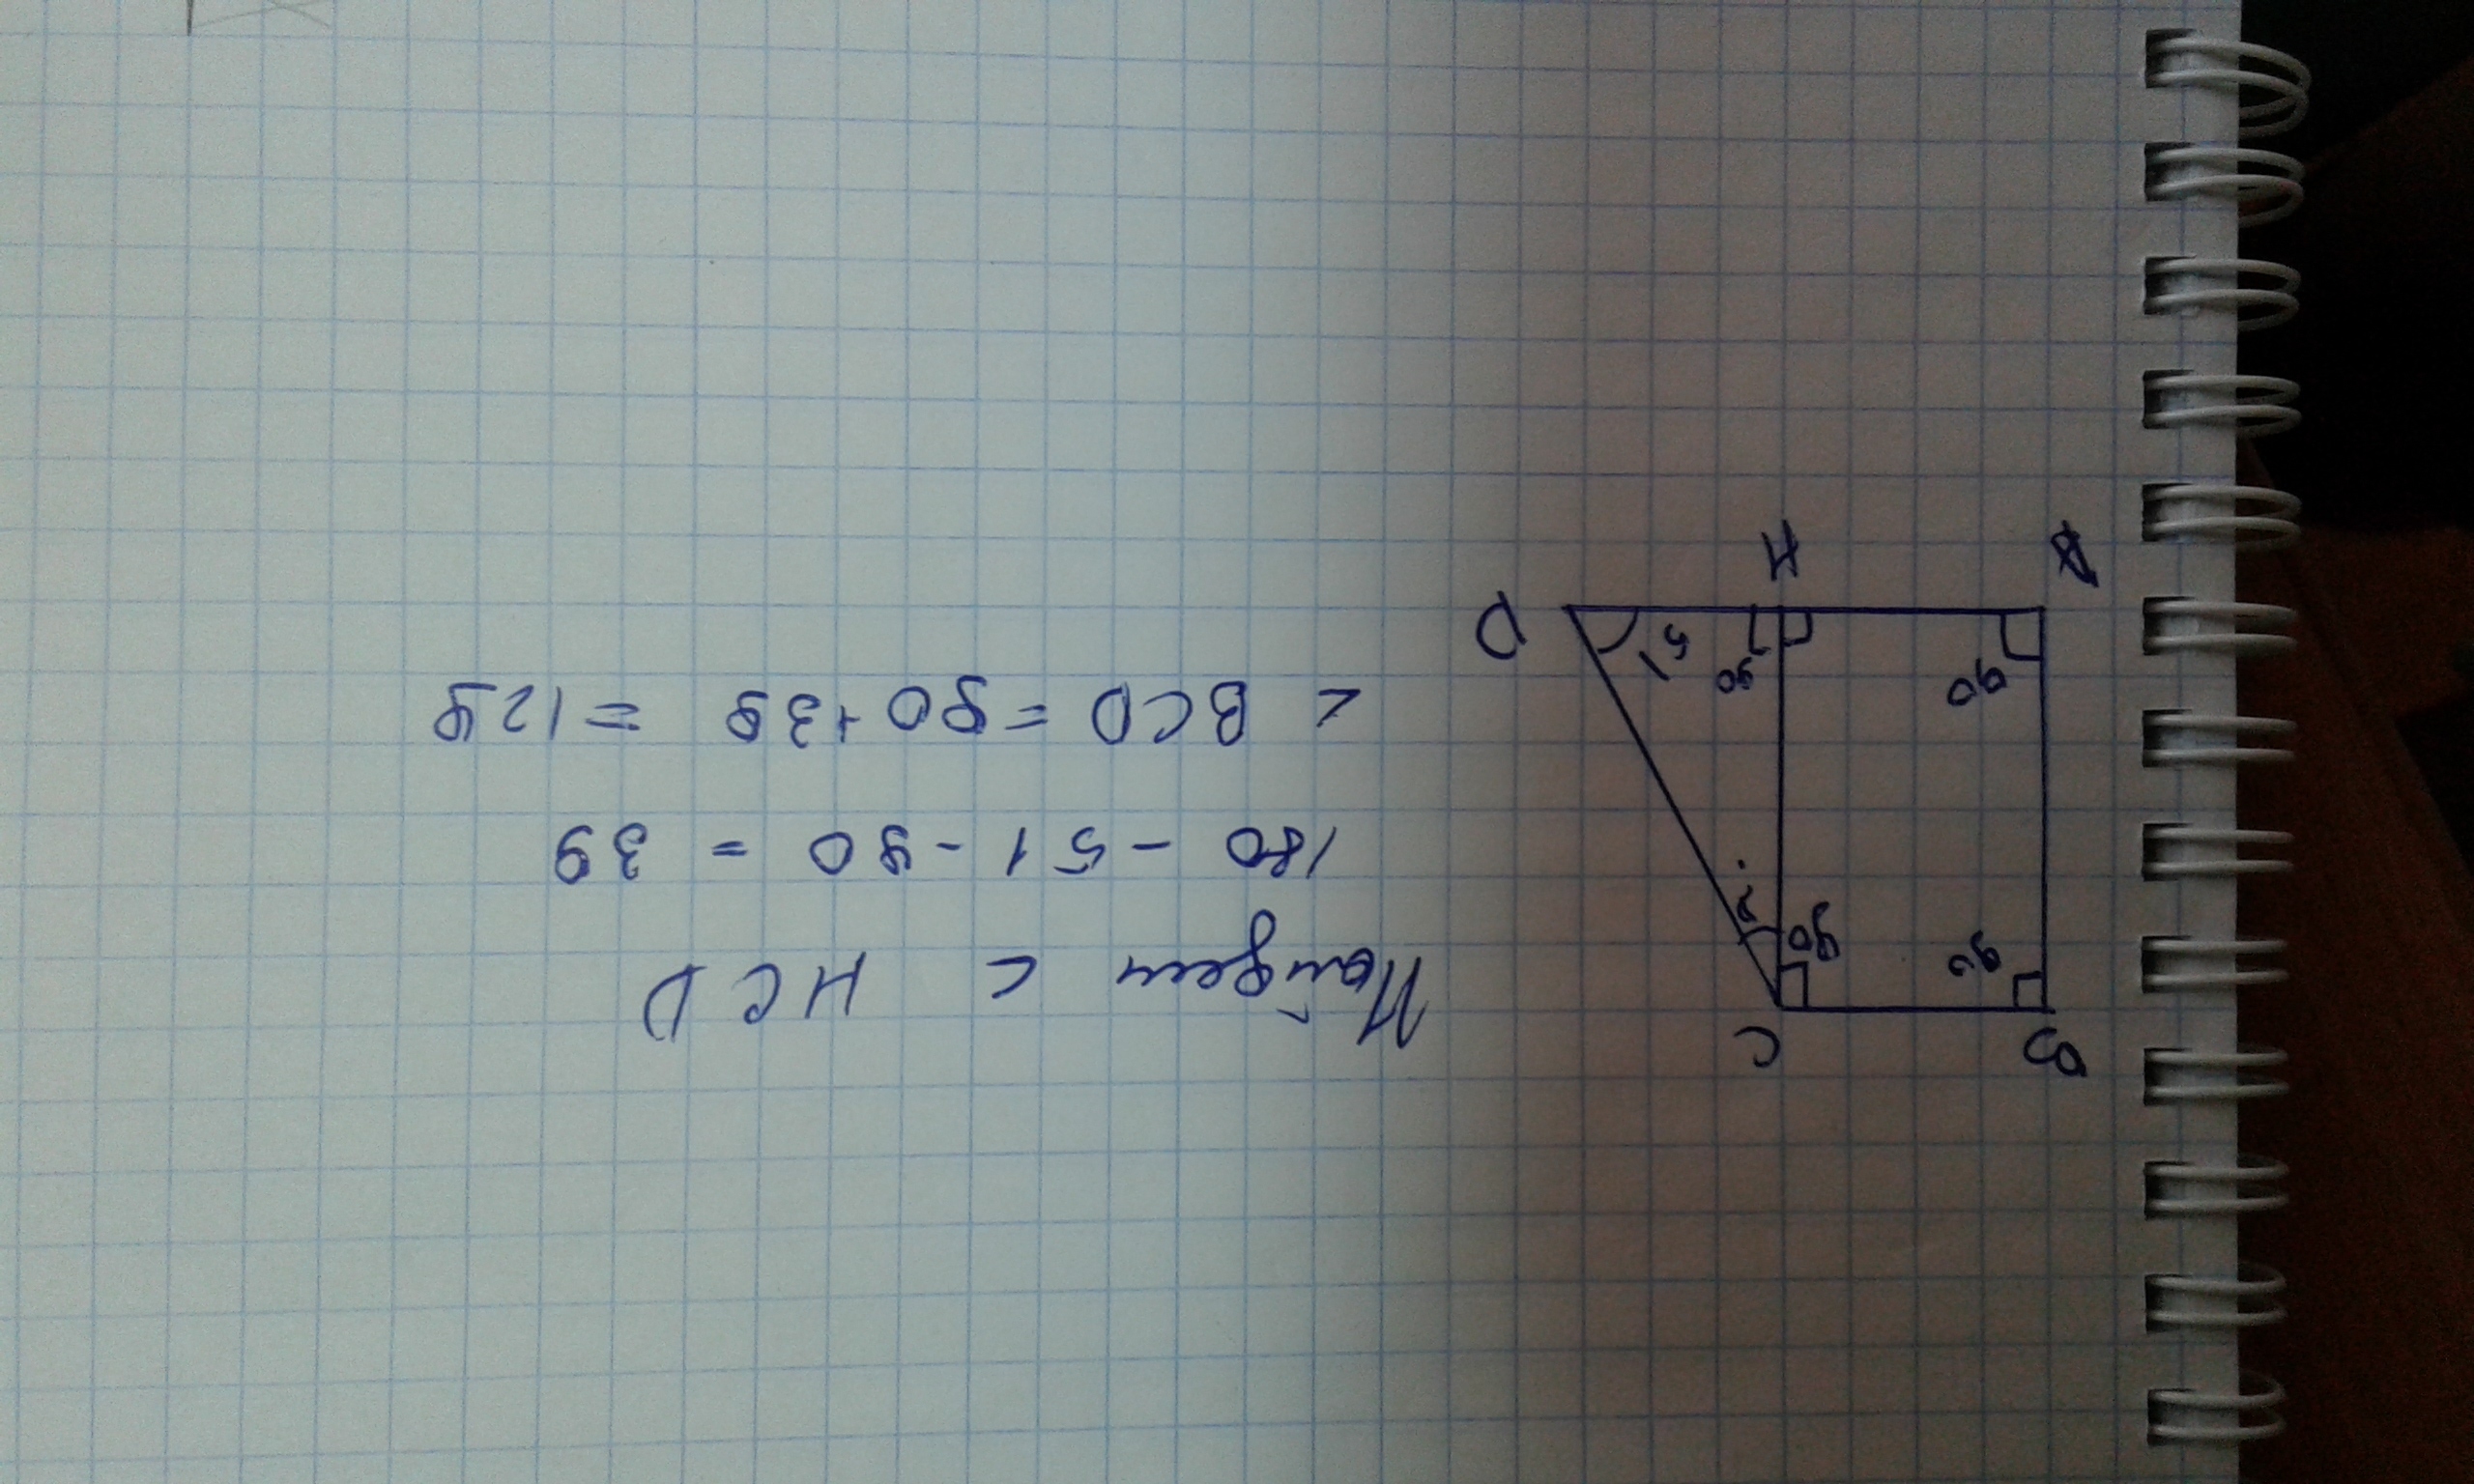 B C
90 90 ?
90 90 51 D
A H
Найдем < HCD
180 - 51 - 90 = 39
< BCD = 90 + 39 = 129